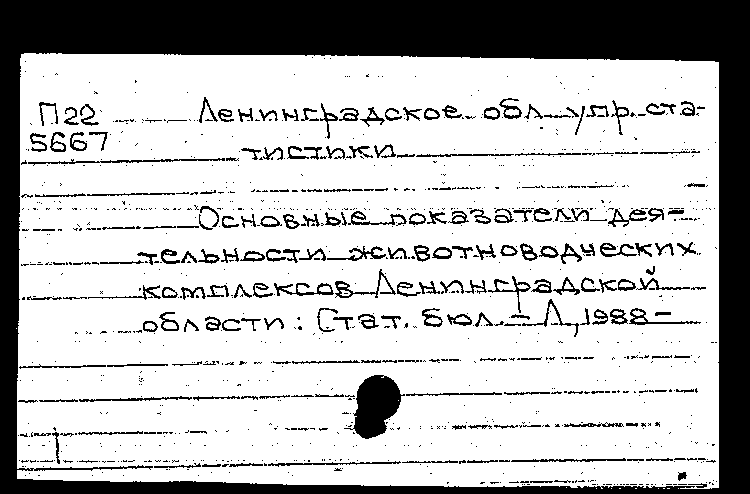 П22 Ленинградское обл. упр. ста-
5667 тистики
Основные показатели дея-
тельности животноводческих
комплексов Ленинградской
области: Стат. бюл. – Л., 1988–